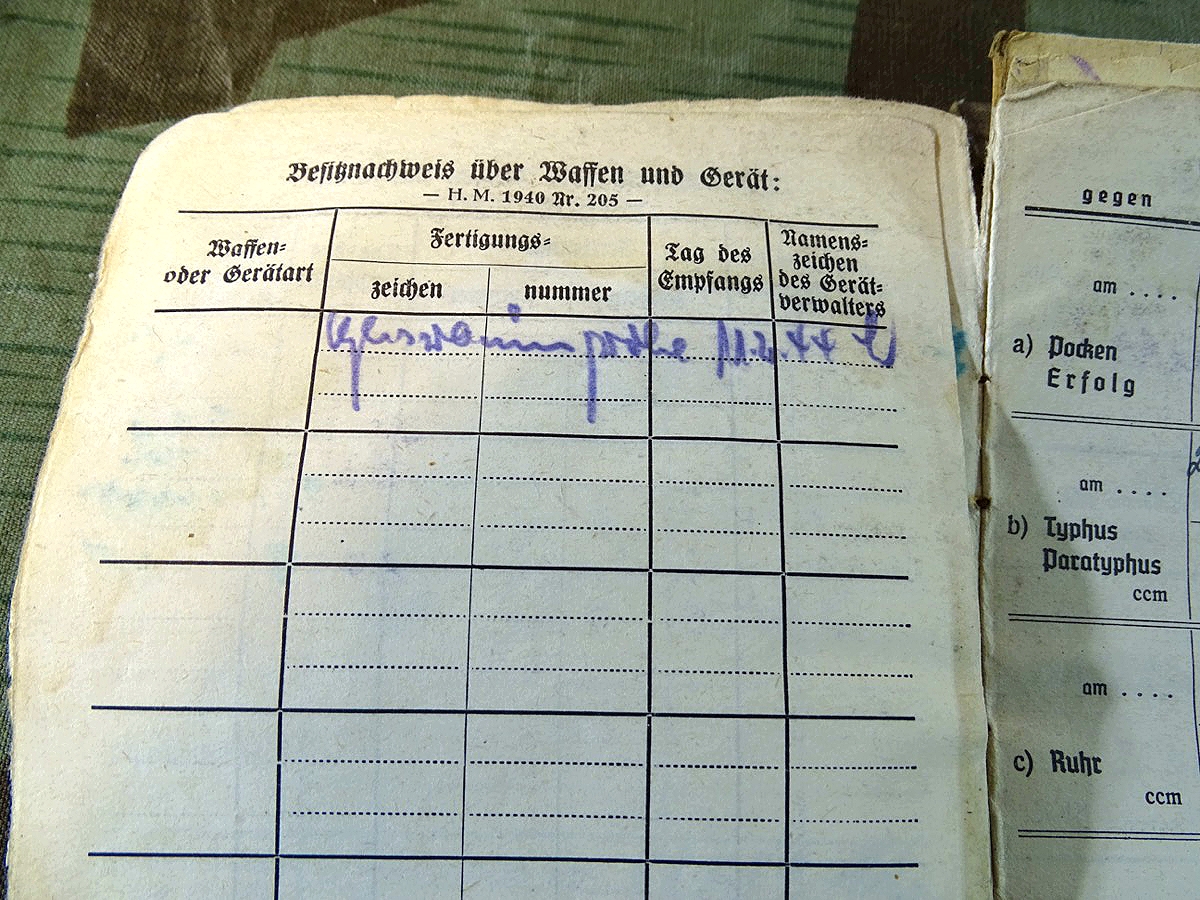 Besitznachweis über Waffen und Gerät:
— H. M. 1940 Nr. 205 —
Waffen-
oder Gerätart
Fertigungs-
zeichen
nummer
Tag des
Empfangs
Namens-
zeichen
des Gerät-
verwalters
44
gegen
am ....
a) Pocken
Erfolg
am ....
b) Typhus
Paratyphus
ccm
am ....
c) Ruhr
ccm